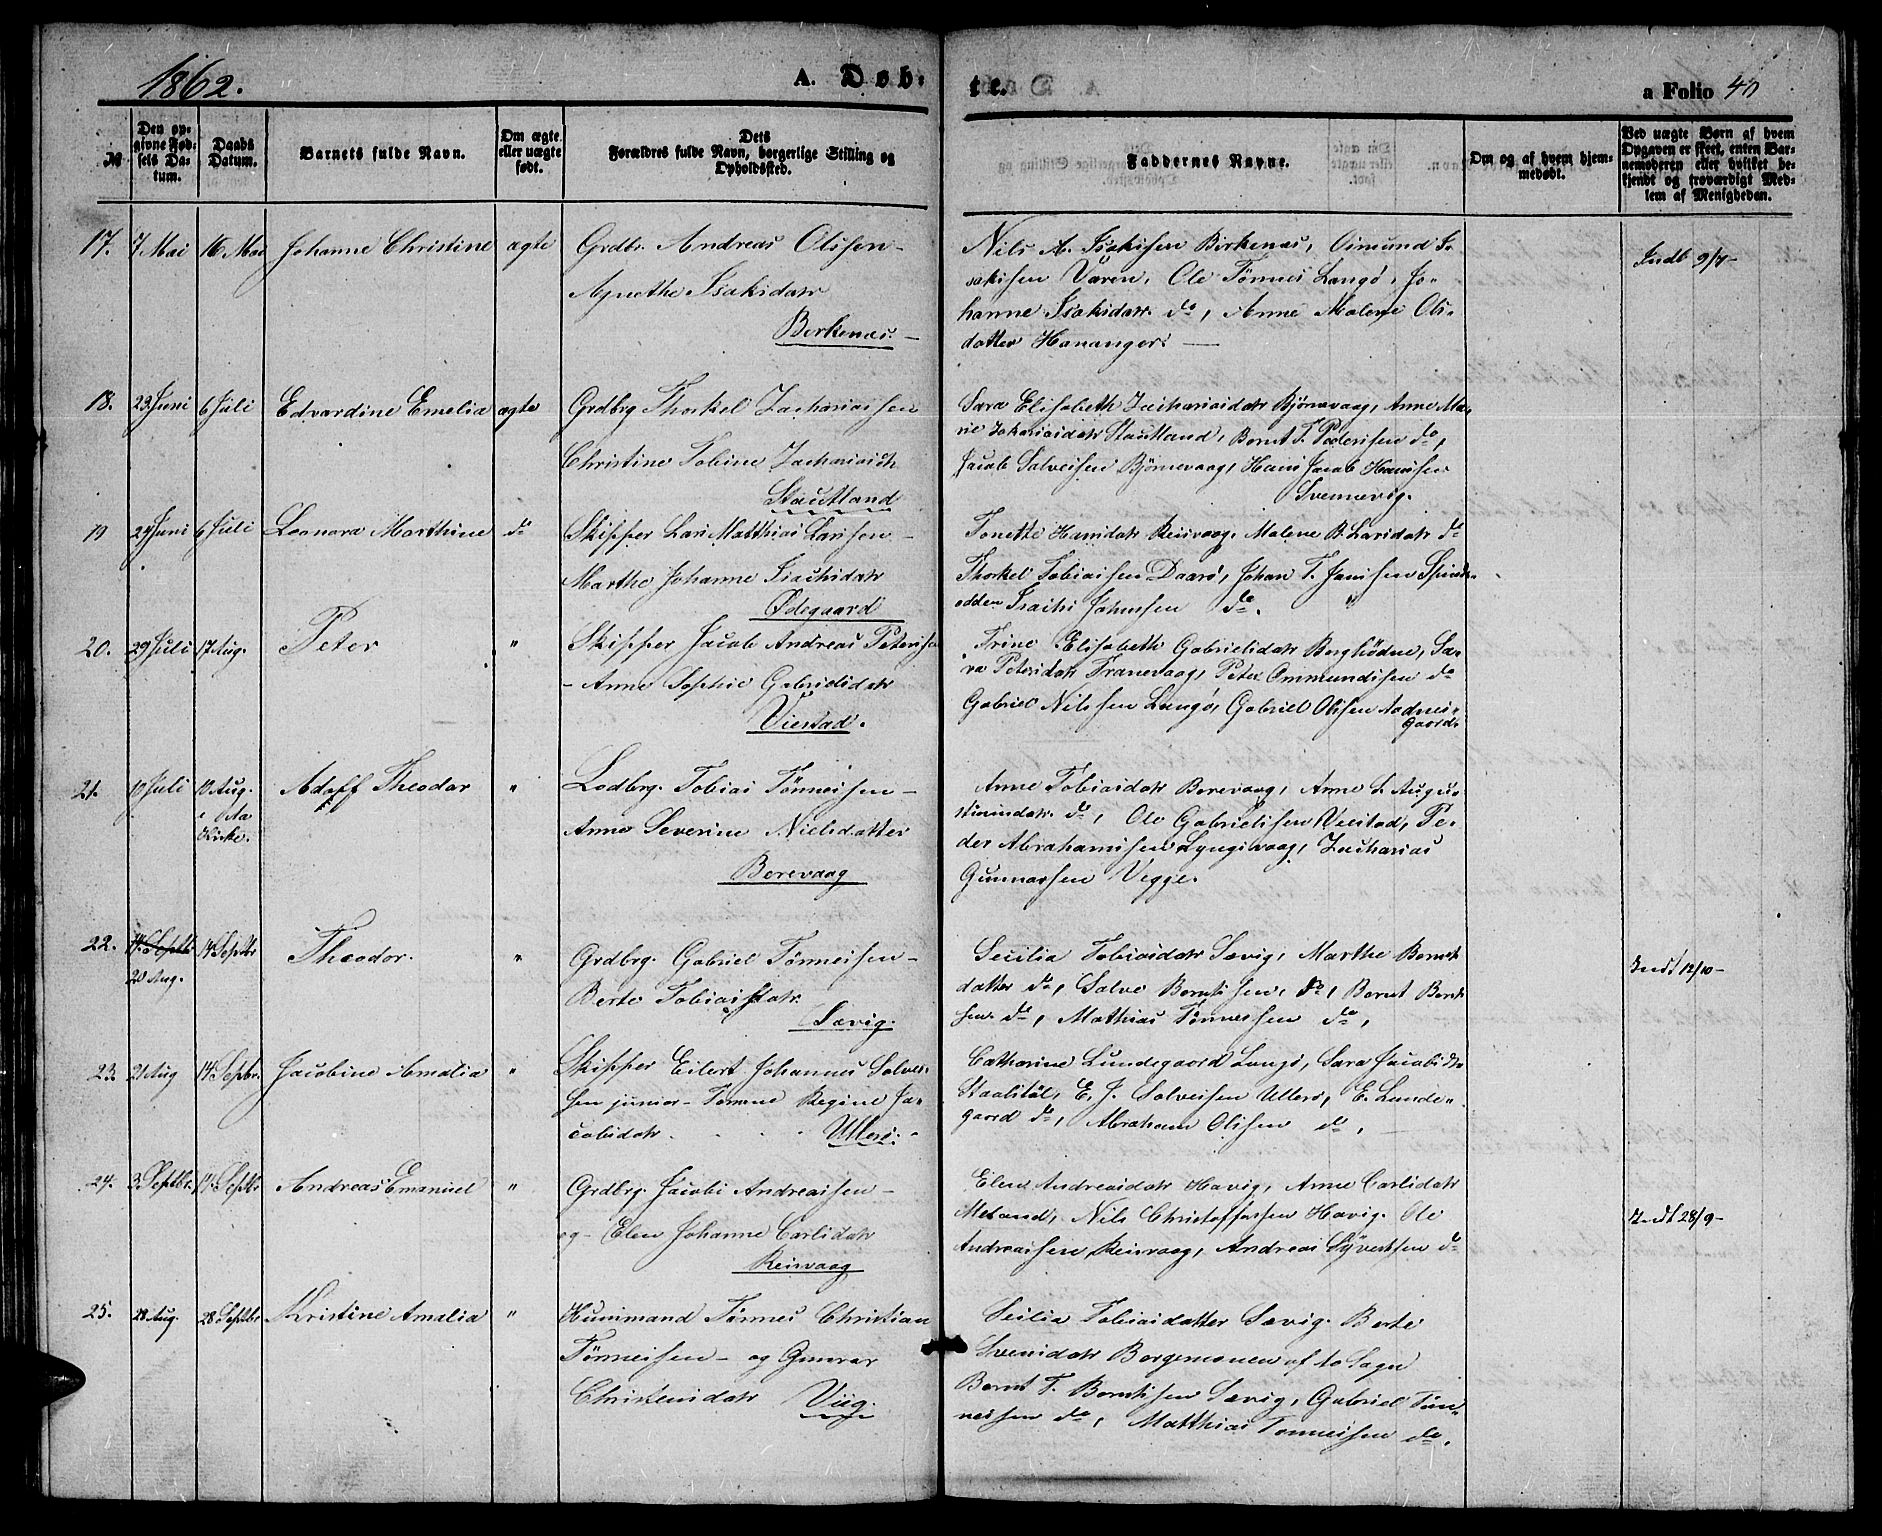 1862.
A. Døb-
te.
a Folio 40
№
Den op-
givne Fød-
sels Da-
tum.
Daabs
Datum.
Barnets fulde Navn.
Om ægte
eller uægte
født.
Dets
Forældres fulde Navn, borgerlige Stilling og
Opholdssted.
Faddernes Navne.
Om og af hvem hjem-
medøbt.
Ved uægte Børn af hvem
Opgaven er skeet, enten Bar-
nemoderen eller hvilket be-
kjendt og troværdigt Med-
lem af Menigheden.
17. 7 Mai 16 Mai Johanne Christine ægte Grdbr. Andreas Olssen -
Agnethe Isaksdatr
Berkenæs. -
Nils A. Isaksen Birkenæs, Osmund I-
saksen Varen, Ole Tønnes Langø, Jo-
hanne Isaksdatr. do, Anne Malene Ols-
datter Hananger. -
Indt 9/7 -
18. 23 Juni 6 Juli Edvardine Emelia ægte Grdbrg Thorkel Zachariassen
Christine Tobine Zachariasdtr
Stautland
Sara Elisabeth Zachariasdatr Bjørnevaag, Anne Ma-
rie Zakariasdatr Stautland, Bernt T. Pedersen do,
Jacob Salvesen Bjørnevaag, Hans Jacob Hansen
Svennevig.
19 24 Juni 6 Juli Leonora Marthine do Skipper Lars Matthias Larsen -
Marthe Johanne Isachsdatr
Ødegaard
Tonette Hansdatr Reisvaag, Malene B. Larsdatr do
Thorkel Tobiassen Daarø, Johan T. Jansen Spinds-
odden Isachs Johnsen do.
20. 29 Juli 17 Aug. Peter " Skipper Jacob Andreas Peterssen
- Anne Sophie Gabrielsdatr
Vierstad.
Trine Elisabeth Gabrielsdatr Berghødne, Sa-
ra Petersdatr Tranevaag, Peter Ommundsen do
Gabriel Nilssen Langø, Gabriel Olssen Aadnes-
gaard
21. 10 Juli 10 Aug.
i Aa
Kirke.
Adolf Theodor " Lodbrg. Tobias Tønnessen -
Anne Severine Nielsdatter
Borevaag
Anne Tobiasdatr Borevaag, Anne S. Augus-
tinusdatr. do, Ole Gabrielssen Viestad, Pe-
der Abrahamssen Lyngsvaag, Zacharias
Gunnarsen Vegge.
22. 14 Septbr.
20 Aug.
14 Septbr Theodor. " Grdbrg. Gabriel Tønnessen -
Berte Tobiasdatr.
Sævig.
Secilia Tobiasdatr Sævig, Marthe Bernt
datter do, Salve Berntssen, do, Bernt Bernt
sen do, Mathias Tønnessen do,
Indt 12/10 -
23. 21 Aug 14 Sepbr. Jacobine Amalia " Skipper Eilert Johannes Salves-
sen junior - Tomine Regine Ja-
cobsdatr. Ullerø. -
Catharine Lundegaard Langø, Sara Jacobsdtr
Staalstøl, E. J. Salvesen Ullerø, E. Lunde-
gaard do, Abraham Olssen do,
24. 3 Septbr. 14 Septbr Andreas Emanuel " Grdbrg. Jacob Andreassen -
og - Elen Johanne Carlsdatr
Reisvaag
Elen Andreasdatr Havig, Anne Carlsdatr
Meland, Nils Christoffersen Havig. Ole
Andreassen Reisvaag, Andreas Syvertsen do
Indt 28/9 -
25. 28 Aug. 28 Septbr Kristine Amalia " Huusmand Tønnes Christian
Tønnessen - og Gunvor
Christensdatr Viig.
Secilia Tobiasdatter Sævig. Berte
Svensdatr Borgemonen af Ao Sogn
Bernt T. Berntssen Sævig, Gabriel Tøn-
nessen do, Matthias Tønnessen do.